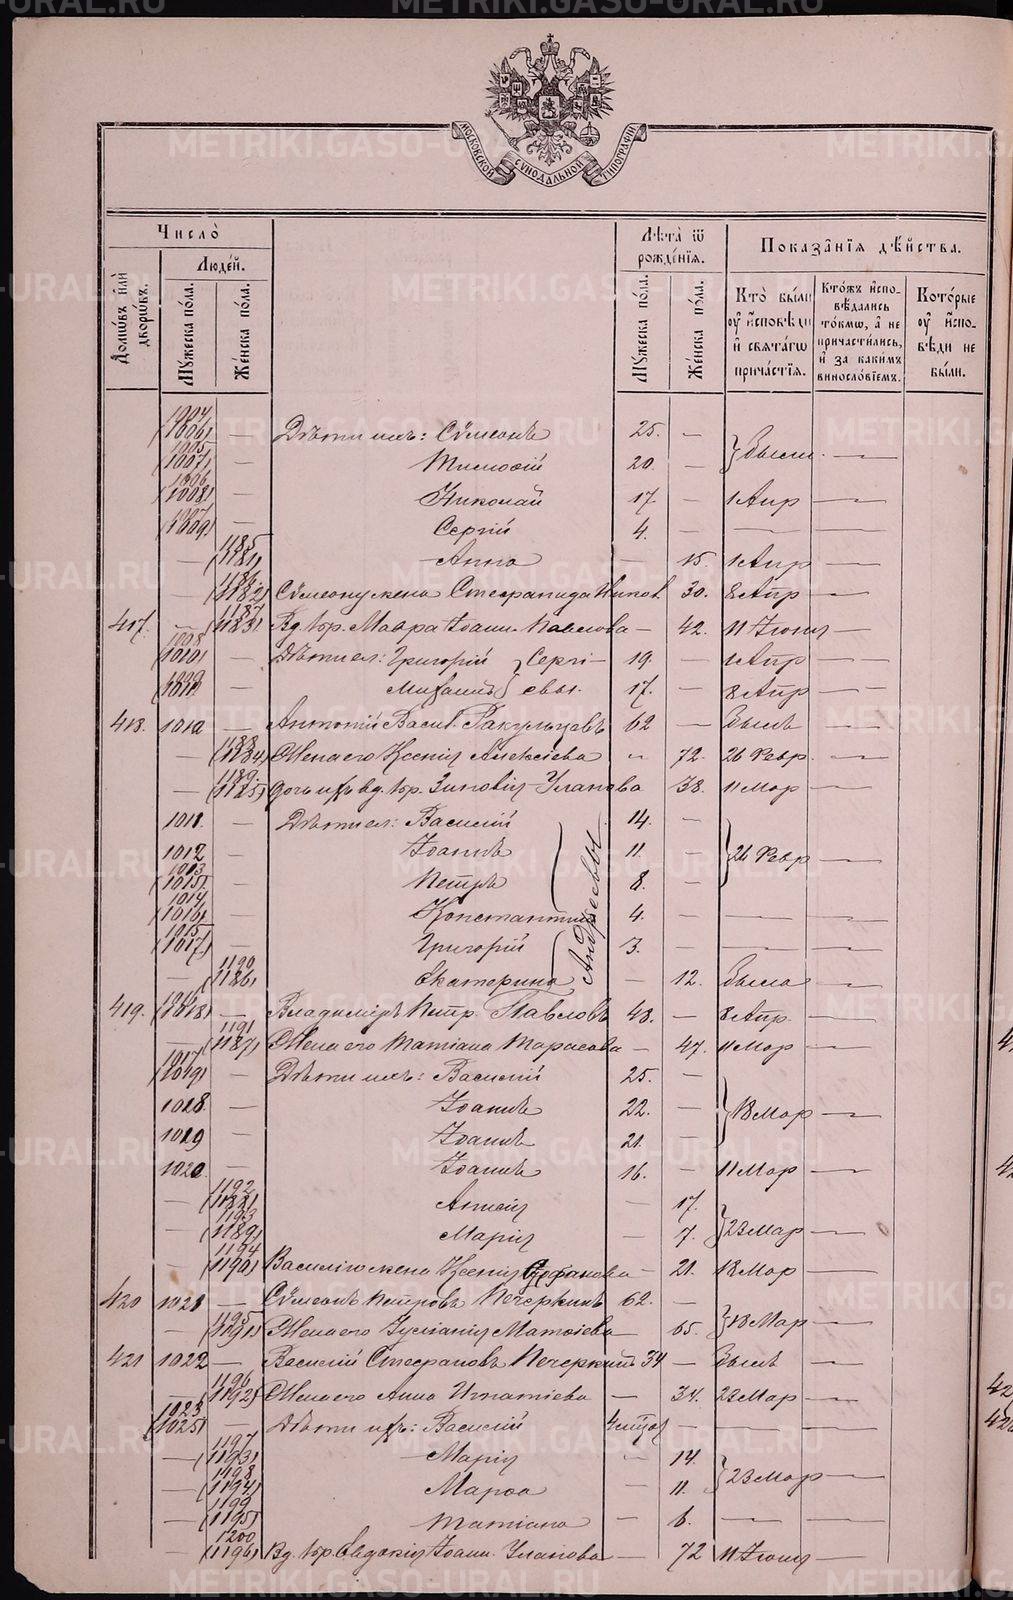 МОСКОВСКОЙ СѴНОДАЛЬНОЙ ТИПОГРАФІИ
Число̀
Людей.
Домѡвъ и҆лѝ дворѡвъ.
Мꙋжеска по́ла.
Же́нска по́ла.
Лѣ́та ѿ рожде́нїѧ.
Мꙋжеска по́ла.
Же́нска по́ла.
Показа́нїѧ дѣ́йства.
Кто̀ бы́ли ᲂу҆ и҆сповѣ́ди и҆ свѧта́гѡ причастїѧ.
Кто́жъ и҆спо-вѣ́дались то́кмѡ, а҆ не причасти́лись, и҆ за каки́мъ виносло́вїемъ.
Кото́рые ᲂу҆ и҆спо-вѣ́ди не бы́ли.
1004 (1006) — Дѣти ихъ: Сѵмеонъ 25. — } Были —
1005 (1007) — Тимоѳій 20. —
1006 (1008) — Николай 17. — 1 Апр —
(1009) — Сергій 4. — —
— 1185 (1181) Анна — 15. 1 Апр —
— 1186 (1182) Сѵмеону жена Стефанида 30. 8 Апр —
417. — 1187 (1183) Вд. Мавра Іоанн. Павлова — 42. 11 Іюня —
1008 (1010) — Дѣти ея: Григорій } Сергі- 19. — 1 Апр —
1009 (1011) — Михаилъ } евы. 17. — 8 Апр —
418. 1012 — Антоній Васил. Ракульцевъ 62 — Былъ —
— 1188 (1184) Жена его Ксенія Алексіева 72. 26 Февр. —
— 1189 (1185) дочь ихъ вд. Зиновія Уланова 38. 11 Мар —
1011. — Дѣти ея: Василій 14. — } 26 Февр —
1012 — Іоаннъ 11. —
1013 (1015) — Петръ 8. —
1014 (1016) — Константинъ 4. — —
1015 (1017) — Григорій 3. — —
— 1190 (1186) Екатерина — 12. Была —
Андреевы
419. 1016 (1018) — Владиміръ Петр. Павловъ 48. — 8 Апр —
— 1191 (1187) Жена его Татіана Тарасова — 47. 11 Мар —
1017 (1019) — Дѣти ихъ: Василій 25. — } 18 Мар —
1028. — Іоаннъ 22. —
1029 — Іоаннъ 21.
1020 — Іоаннъ 16. — 11 Мар —
— 1192 (1188) — 17. } 23 Мар —
— 1193 (1189) Марія — 7.
— 1194 (1190) Василію жена Ксенія — 21. 18 Мар —
420 1021 — Сѵмеонъ Петровъ Печеркинъ 62. — } 18 Мар —
— 1195 (1191) Жена его Іуліанія Матѳіева — 65.
421 1022 — Василій Стефановъ Печеркинъ 34 — Былъ —
— 1196 (1192) Жена его Анна Игнатіева — 34. 23 Мар —
1023 (1025) — Дѣти ихъ: Василій — —
— 1197 (1193) Марія — 14 } 23 Мар —
— 1198 (1194) Марѳа — 11.
— 1199 (1195) Татіана — 6. — —
— 1200 (1196) Вд. Евдокія Іоанн. Уланова — 72 11 Іюня —
METRIKI.GASO-URAL.RU